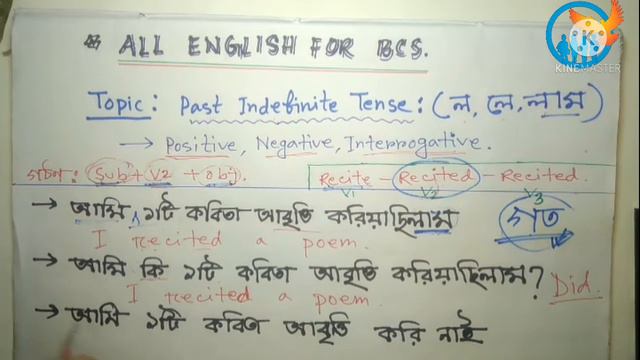 * ALL ENGLISH FOR BCS.
KINEMASTER
Topic: Past Indefinite Tense: (ল, লে, লাম)
→ Positive, Negative, Interrogative.
গঠন: Subⁿ + V2 + obj. Recite - Recited - Recited.
V1 V2 V3
→ আমি ১টি কবিতা আবৃত্তি করিয়াছিলাম গত
I recited a poem.
→ আমি কি ১টি কবিতা আবৃত্তি করিয়াছিলাম? Did.
I recited a poem.
→ আমি ১টি কবিতা আবৃত্তি করি নাই